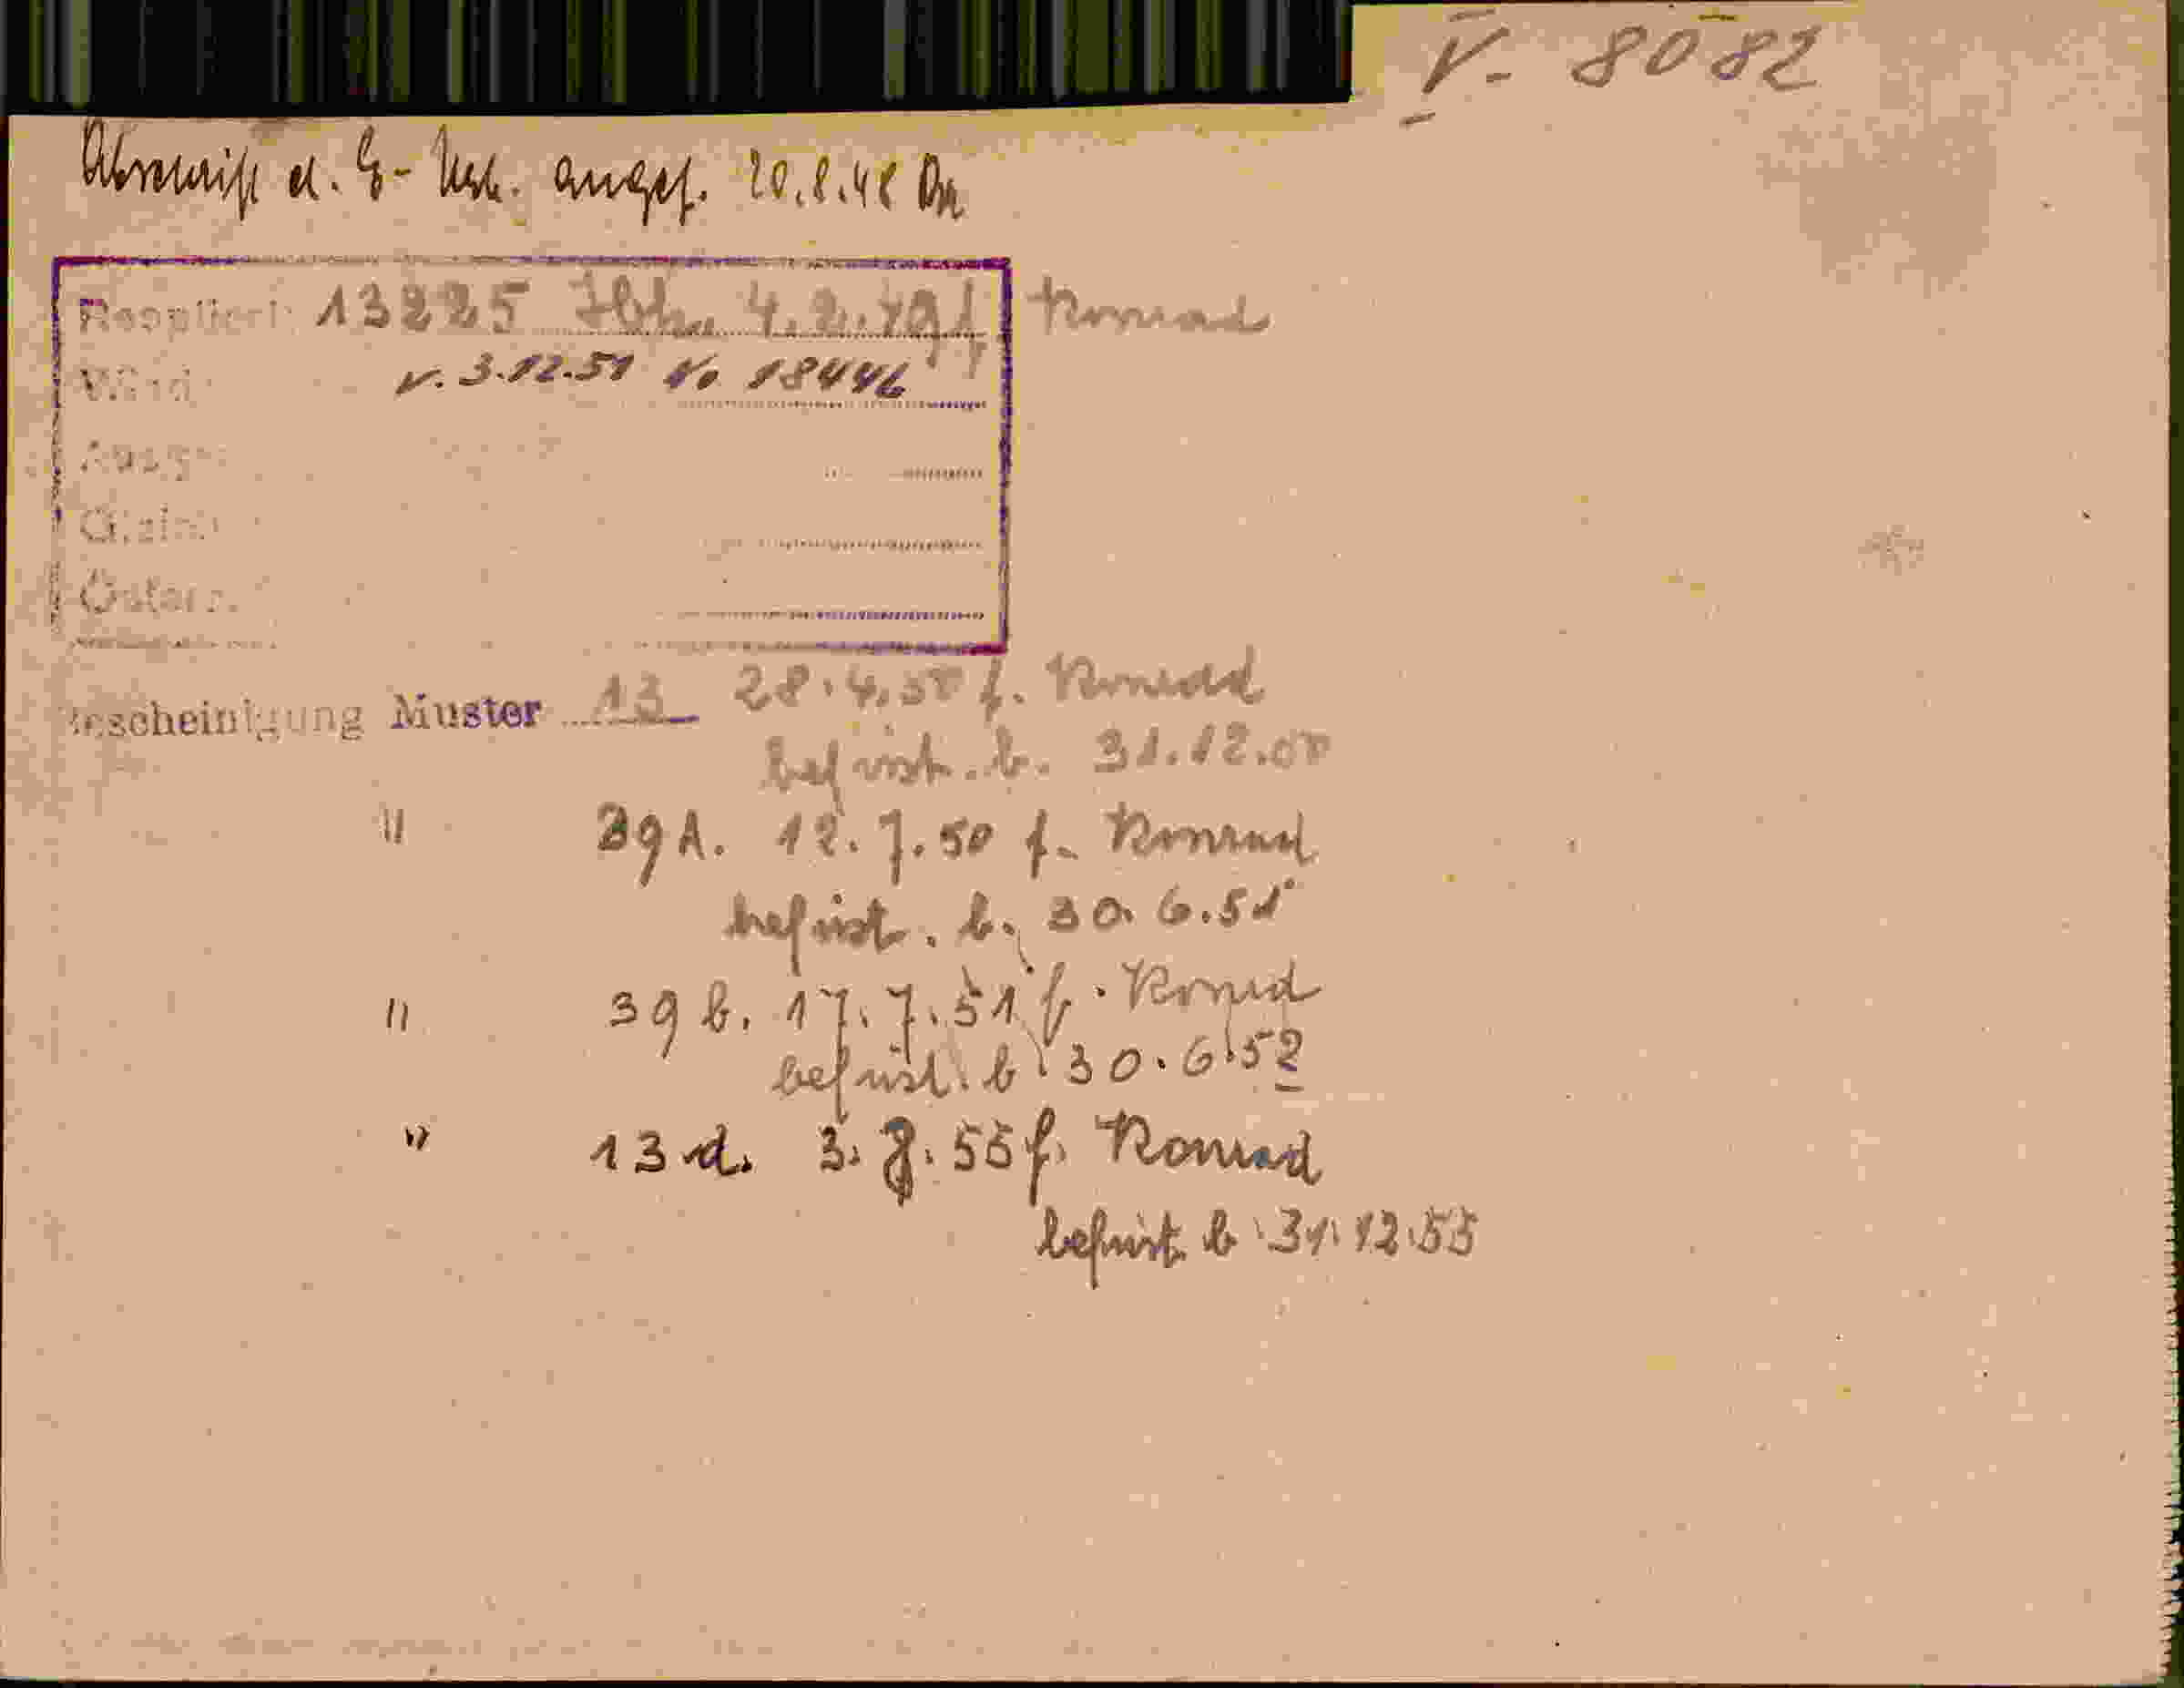 V. 8082
Abschrift d. E- Urk. angef. 20.8.48
13225 4.2.49 f. Konrad
v. 3.12.51 No 18446
Bescheinigung Muster 13 28.4.50 f. Konrad
befrist. b. 31.12.50
" 39 A. 12.7.50 f. Konrad
befrist. b. 30.6.51
" 39 b. 17.7.51 f. Konrad
befrist. b. 30.6.52
" 13 d. 3. 55 f. Konrad
befrist. b. 31.12.55